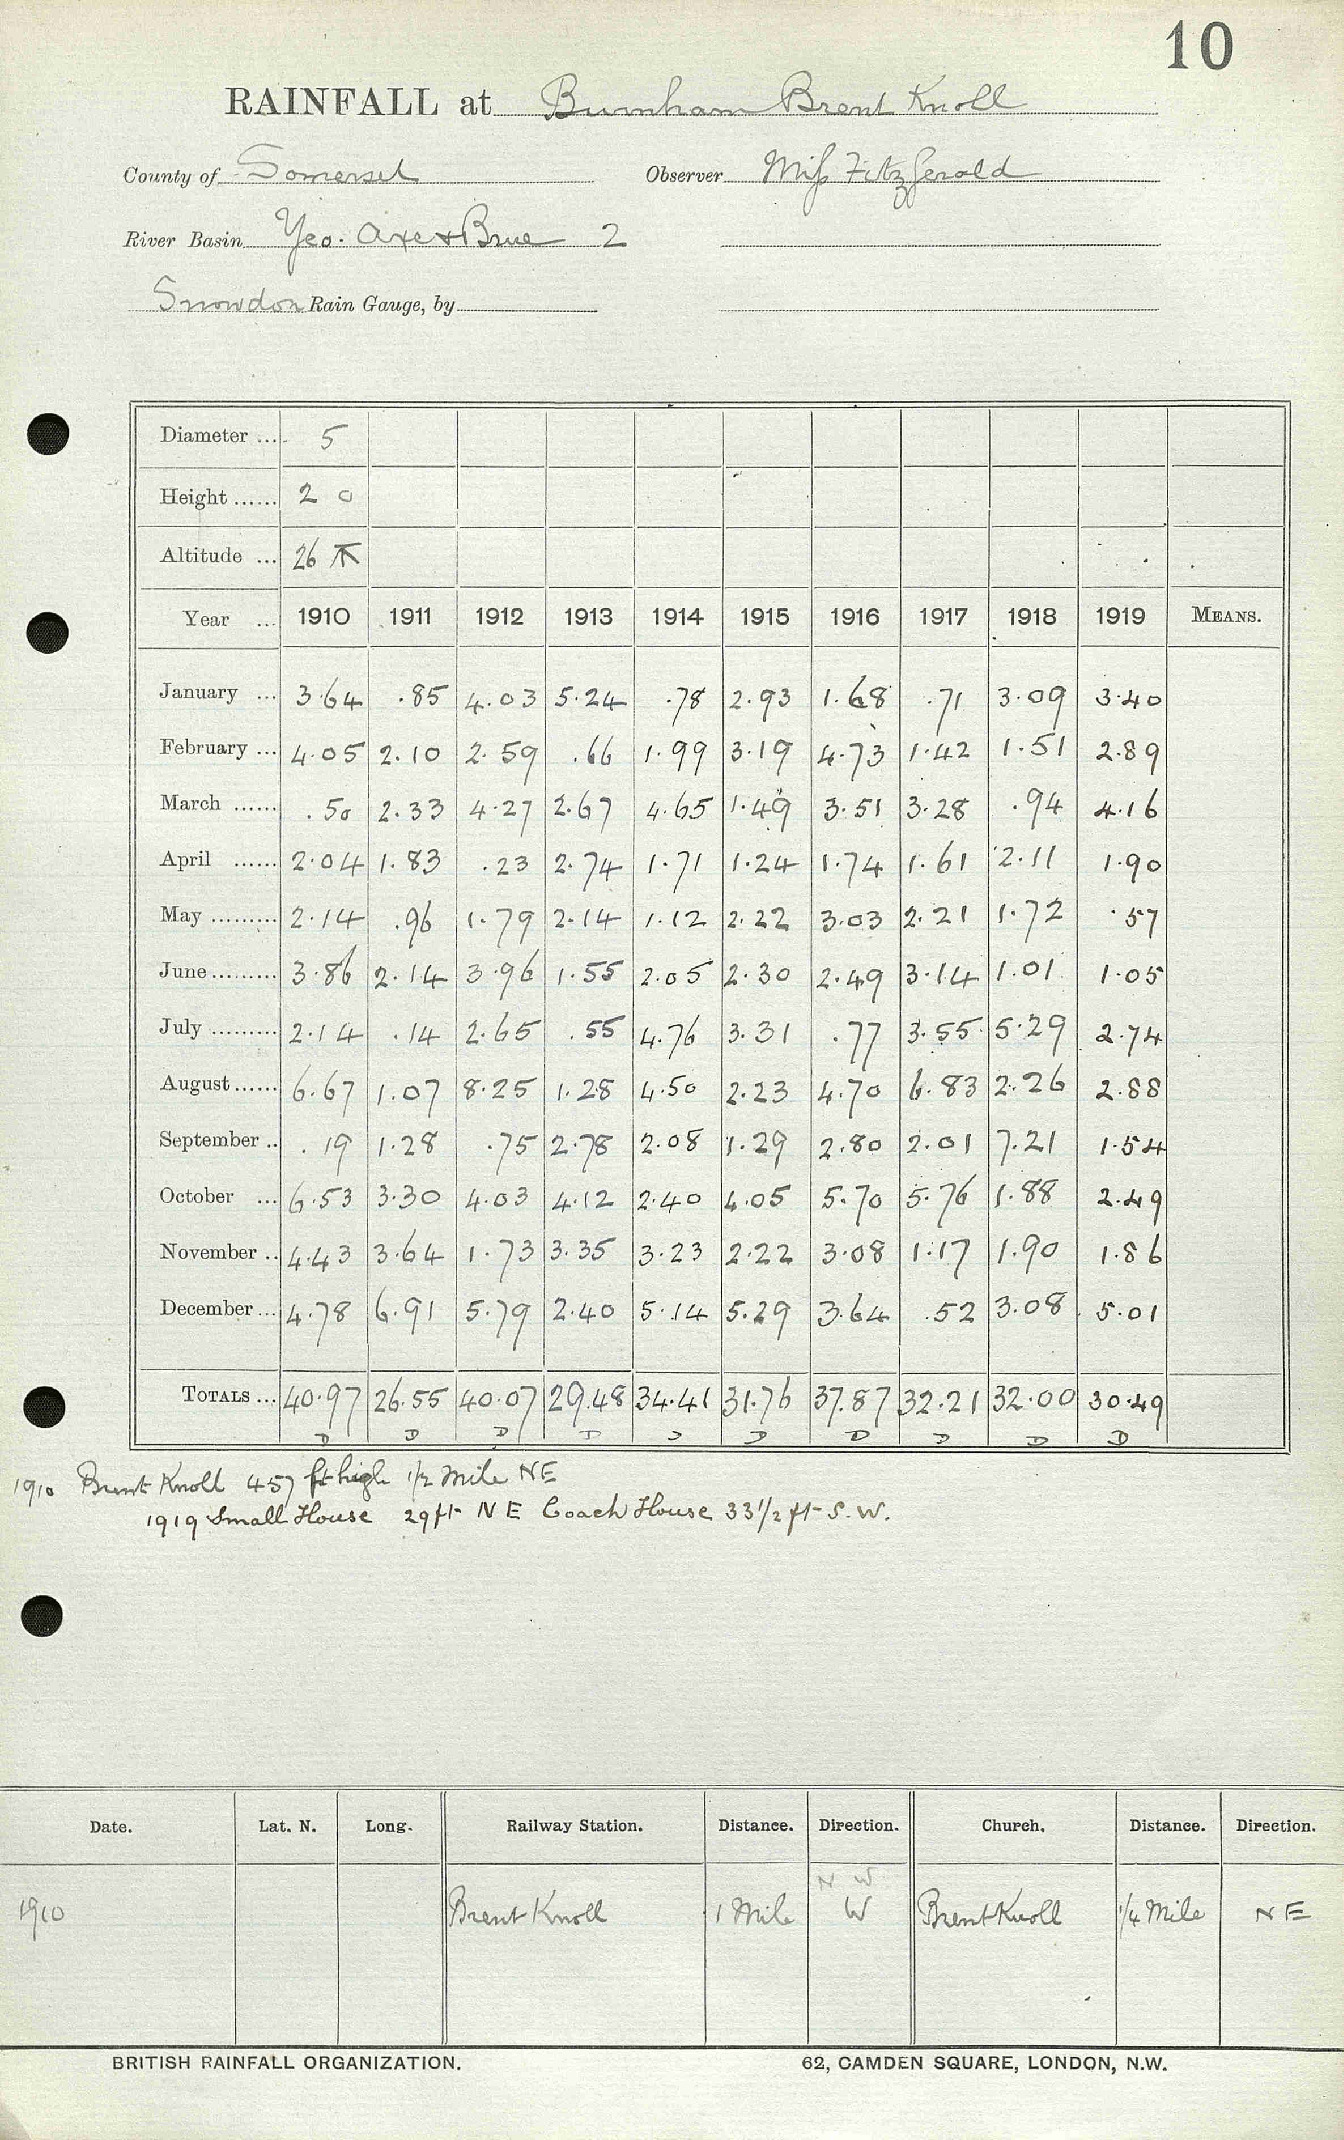 10
RAINFALL at Burnham Brent Knoll
County of Somerset Observer Miss Fitzgerald
River Basin Yeo. Axe & Brue 2
Snowdon Rain Gauge, by
Diameter ... 5
Height ...... 2 0
Altitude ... 26
Year ... 1910 1911 1912 1913 1914 1915 1916 1917 1918 1919 MEANS.
January ... 3.64 .85 4.03 5.24 .78 2.93 1.68 .71 3.09 3.40
February ... 4.05 2.10 2.59 .66 1.99 3.19 4.73 1.42 1.51 2.89
March ...... .50 2.33 4.27 2.67 4.65 1.49 3.51 3.28 .94 4.16
April ...... 2.04 1.83 .23 2.74 1.71 1.24 1.74 1.61 2.11 1.90
May ......... 2.14 .96 1.79 2.14 1.12 2.22 3.03 2.21 1.72 .57
June ......... 3.86 2.14 3.96 1.55 2.05 2.30 2.49 3.14 1.01 1.05
July ......... 2.14 .14 2.65 .55 4.76 3.31 .77 3.55 5.29 2.74
August ...... 6.67 1.07 8.25 1.28 4.50 2.23 4.70 6.83 2.26 2.88
September .. .19 1.28 .75 2.78 2.08 1.29 2.80 2.01 7.21 1.54
October ... 6.53 3.30 4.03 4.12 2.40 4.05 5.70 5.76 1.88 2.49
November .. 4.43 3.64 1.73 3.35 3.23 2.22 3.08 1.17 1.90 1.86
December ... 4.78 6.91 5.79 2.40 5.14 5.29 3.64 .52 3.08 5.01
TOTALS ... 40.97 26.55 40.07 29.48 34.41 31.76 37.87 32.21 32.00 30.49
D D D D D D D D D D
1910 Brent Knoll 457 ft high 1/2 Mile NE
1919 Small House 29ft NE Coach House 33 1/2 ft S.W.
Date. Lat. N. Long. Railway Station. Distance. Direction. Church. Distance. Direction.
N W
1910 Brent Knoll 1 Mile W Brent Knoll 1/4 Mile NE
BRITISH RAINFALL ORGANIZATION. 62, CAMDEN SQUARE, LONDON, N.W.